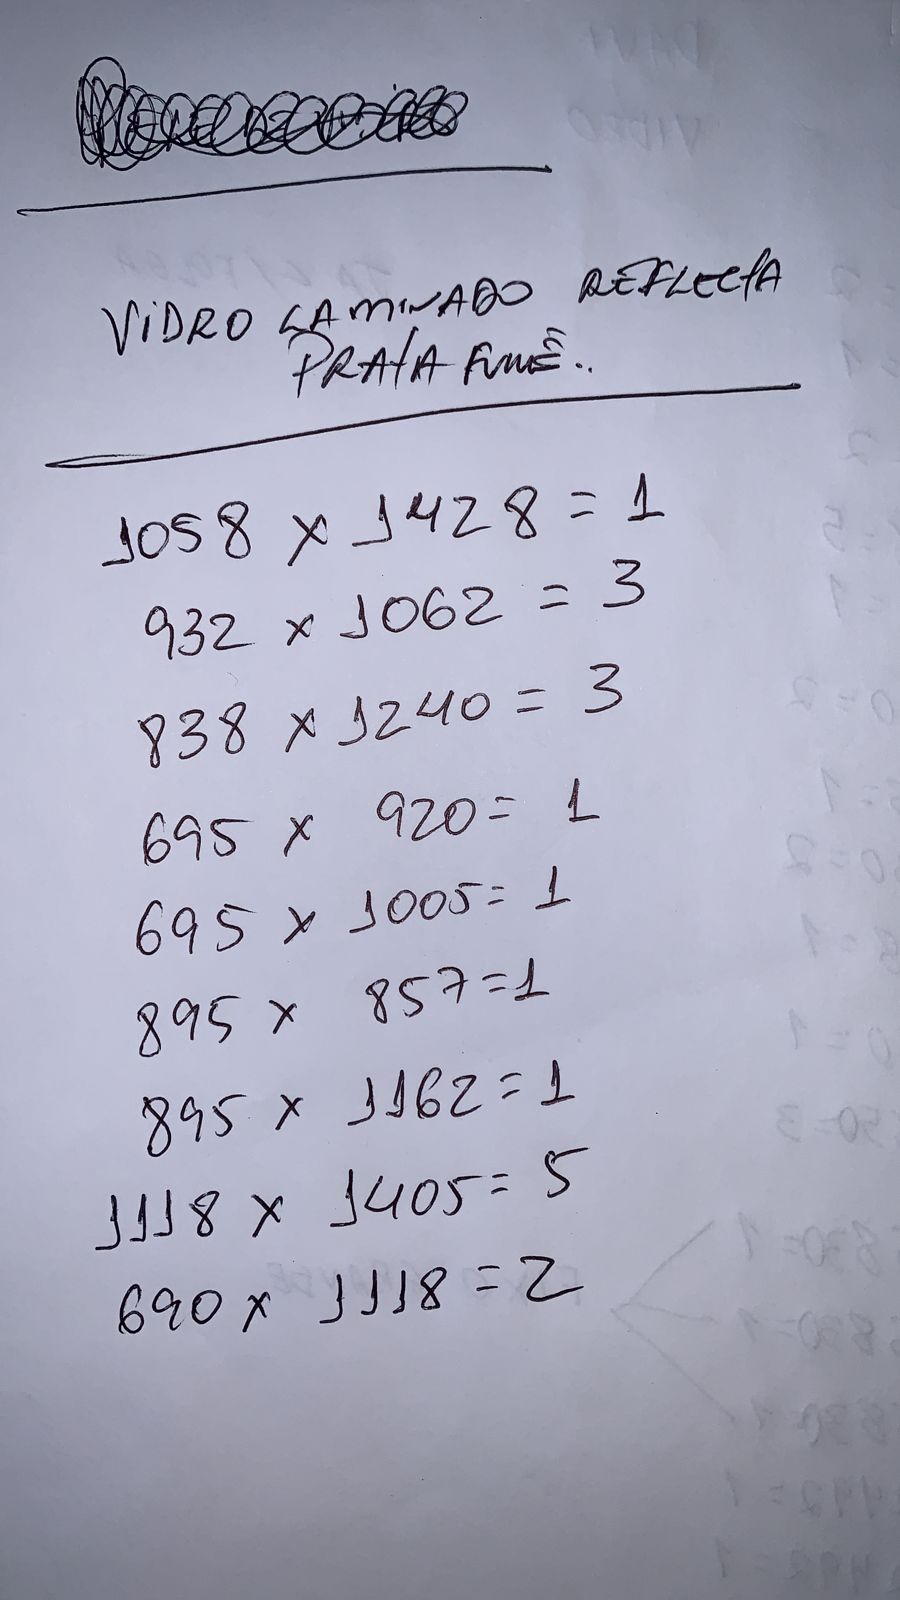 VIDRO LAMINADO REFLECTA
PRATA FUMÊ..
1058 x 1428 = 1
932 x 1062 = 3
838 x 1240 = 3
695 x 920 = 1
695 x 1005 = 1
895 x 857 = 1
895 x 1162 = 1
1118 x 1405 = 5
690 x 1118 = 2